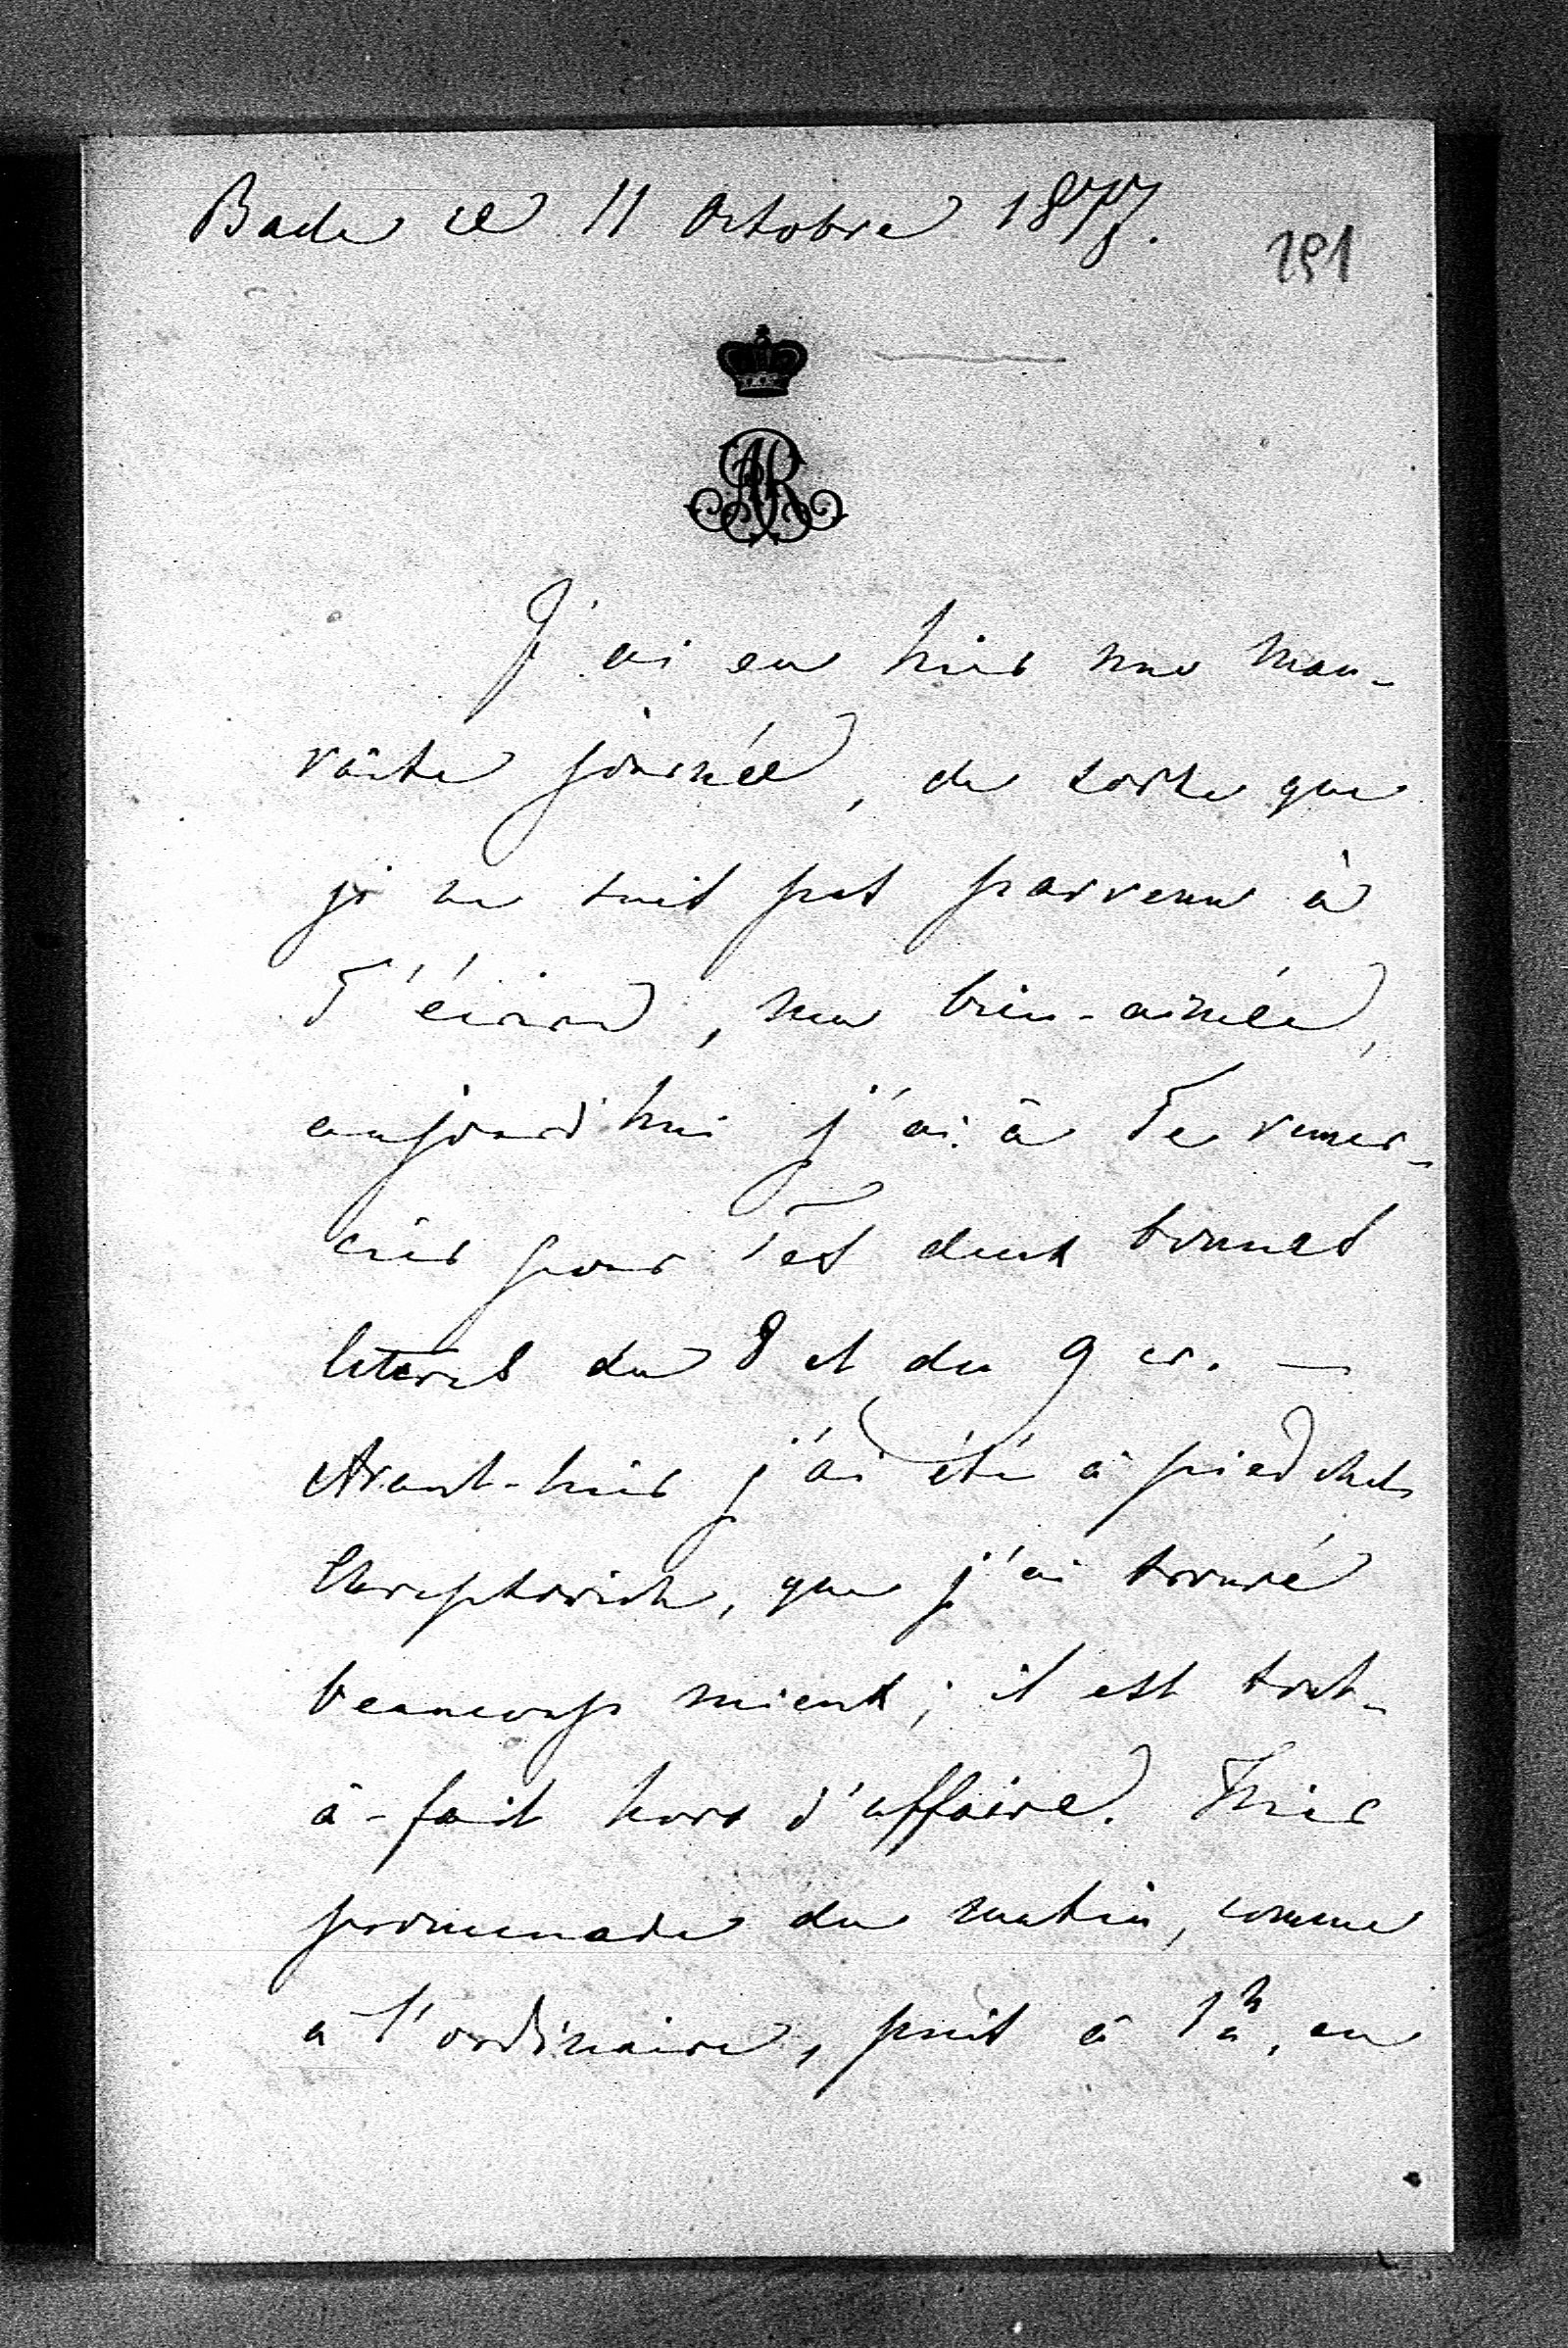 Bade ce 11 Octobre 1877.
191
AR
J'ai eu hier une mau-
vaise journée, de sorte que
je ne suis pas parvenu à
T'écrire, ma bien-aimée,
aujourd'hui j'ai à Te remer-
cier pour Tes deux bonnes
lettres du 8 et du 9 cr. —
Avant-hier j'ai été à pied chez
que j'ai trouvé
beaucoup mieux; il est tout-
à-fait hors d'affaire. Hier
promenade du matin, comme
à l'ordinaire, puis à 1h, en